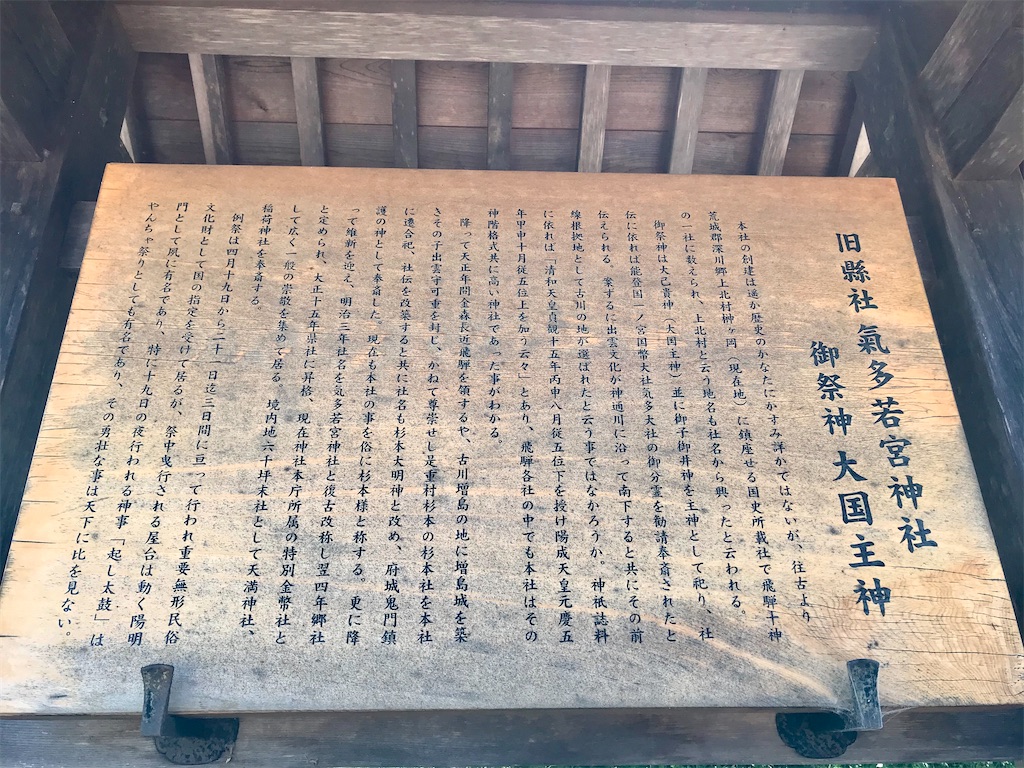 旧縣社 氣多若宮神社
御祭神大国主神
本社の創建は遥か歴史のかなたにかすみ詳かではないが、往古より
荒城郡深川郷上北村榊ヶ岡（現在地）に鎮座せる国史所載社で飛騨十神
の一社に数えられ、上北村と云う地名も社名から興ったと云われる。
御祭神は大己貴神（大国主神）並に御子御井神を主神として祀り、社
伝に依れば能登国一ノ宮国幣大社気多大社の御分霊を勧請奉斎されたと
伝えられる。案するに出雲文化が神通川に沿って南下すると共にその前
線根拠地として古川の地が選ばれたと云う事ではなかろうか。神祇誌料
に依れば「清和天皇貞観十五年丙申八月従五位下を授け陽成天皇元慶五
年甲申十月従五位上を加う云々」とあり、飛騨各社の中でも本社はその
神階格式共に高い神社であった事がわかる。
降って天正年間金森長近飛騨を領するや、古川増島の地に増島城を築
きその子出雲守可重を封じ、かねて尊崇せし足重村杉本の杉本社を本社
に遷合祀、社伝を改築すると共に社名も杉本大明神と改め、府城鬼門鎮
護の神として奉斎した。現在も本社の事を俗に杉本様と称する。更に降
って維新を迎え、明治三年社名を気多若宮神社と復古改称し翌四年郷社
と定められ、大正十五年県社に昇格、現在神社本庁所属の特別金幣社と
して広く一般の崇敬を集めて居る。境内地六千坪末社として天満神社、
稲荷神社を奉斎する。
例祭は四月十九日から二十一日迄三日間に亘って行われ重要無形民俗
文化財として国の指定を受けて居るが、祭中曳行される屋台は動く陽明
門として夙に有名であり、特に十九日の夜行われる神事「起し太鼓」は
やんちゃ祭りとしても有名であり、その勇壮な事は天下に比を見ない。